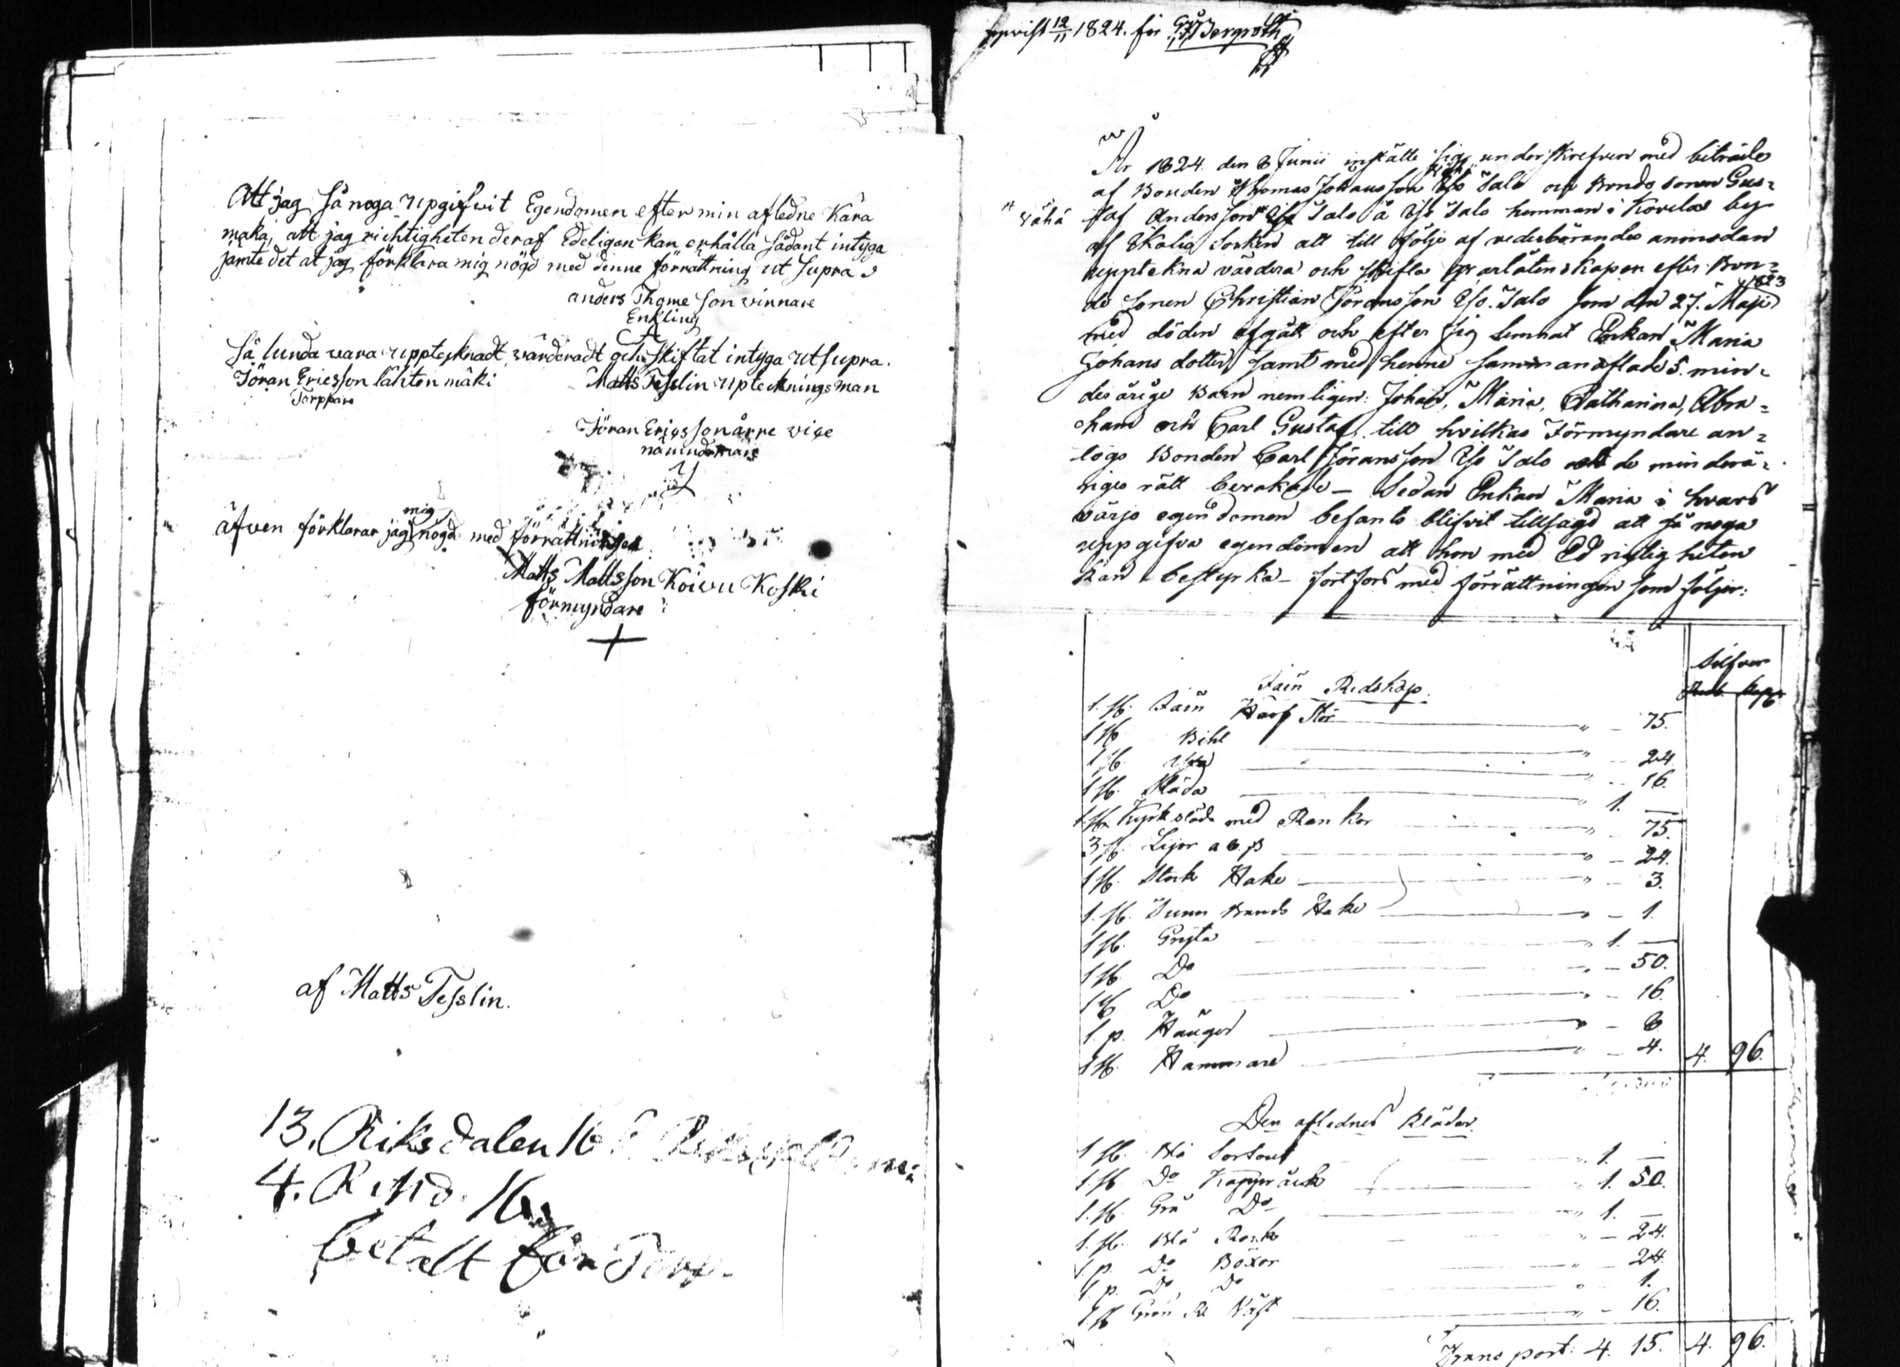 Att jag så noga upgifvit Egendomen efter min afledne Kära
maka, att jag richtigheten deraf Edeligen kan erhålla sådant intyga
jämte det at jag förklara mig nögd med denne förrättning ut Supra
anders Thomeson vinnare
Enkling
Så lunda vara upptecknadt värderadt och skiftat intyga ut supra.
Jöran Ericsson lähten mäki
Torppare
Matts Tesslin upteckningsman
Jöran Ericsson årre vice
nämndeman
äfven förklarar jag mig nögd med förrättningen
Matts Mattsson Koivu Koski
förmyndare
af Matts Tesslin.
13. Riksdalen 16
4. R 16
betalt för
1824. för Bergroth
År 1824 den 8 Junii instälte sig underskrefven med biträde
af Bonden Thomas Johansson Iso Salo och Bonde sonen Gus=
Vähä
taf Andersson Salo å Iso Salo hemman i Kovelax by
af Sorken att till följe af vederbörandes anmodan
upptekna värdera och skifta qvarlåtenskapen efter Bon=
de sonen Christian Jöransson Iso Salo som den 27. Maji 1823
med döden afgått och efter sig lemnat Enkan Maria
Johans dotter samt med henne samman aflade 5. min=
derårige Barn nemligen: Johan, Maria, Catharina, Abra=
ham och Carl Gustaf, till hvilkas Förmyndare an=
togs Bonden Carl Jöransson Iso Salo de minderå=
riges rätt bevakade – Sedan Enkan Maria i hvars
värjo egendomen befants blifvit tillsagd att så noga
uppgifva egendomen att hon med Ed rigtigheten
kan bestyrka – fortfors med förrättningen som följer:
Silfver
Rub. Kop.
Järn Redskap.
1. st. Järn Harf Stör " – 75.
1 st Bihl " – 24.
1 st. " – 16.
1 st. Släda " 1. –
1 st. Kyrk släde med Rankor " – 75.
3 st. Lijor a 8. " – 24.
1 st. Stock Hake " – 3.
1. st. Tunn Bands Hake " – 1.
1 st. Gryta " 1. –
1 st. Do " – 50.
1 st. Do " – 16.
1. p. " – 8
1 st. Hammare " – 4. 4. 96.
Den aflednes Kläder.
1 st. Blå Sortout 1. –
1 st. Do Kappråck " 1. 50.
1. st. Grå Do " 1. –
1. st. Blå Rock " – 24.
1 p. Do Böxor 24.
1 p. Do Do " 1.
1 st Väst " – 16.
Transport: 4. 15. 4. 96.